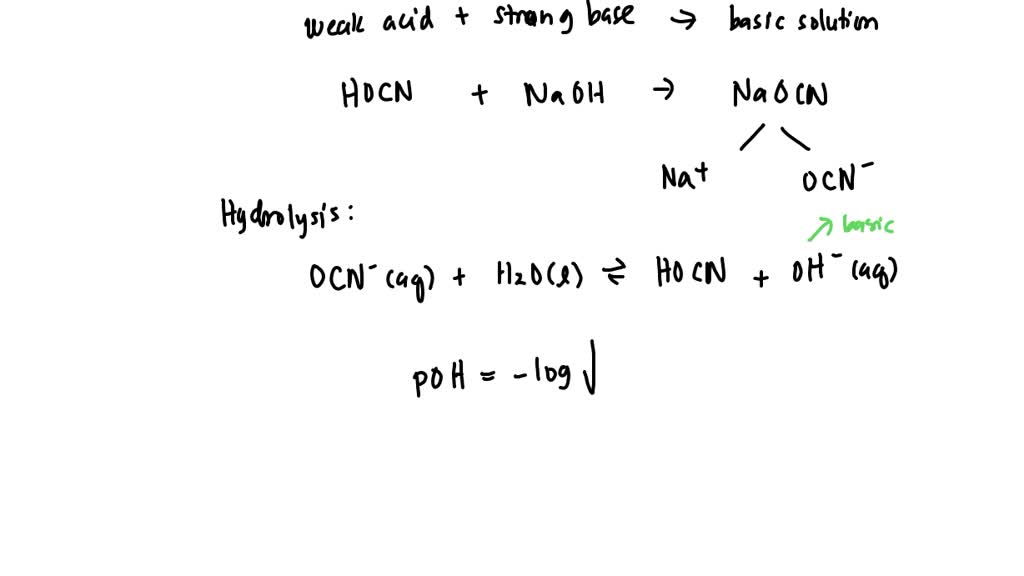 weak acid + strong base → basic solution
HOCN + NaOH → NaOCN
Na⁺ OCN⁻
Hydrolysis:
basic
OCN⁻ (aq) + H₂O(l) ⇌ HOCN + OH⁻ (aq)
pOH = -log √